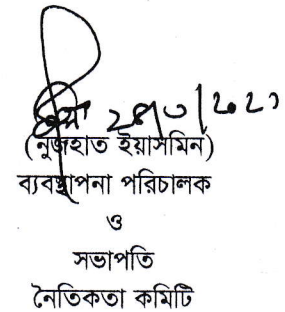 (নুজহাত ইয়াসমিন)
ব্যবস্থাপনা পরিচালক
ও
সভাপতি
নৈতিকতা কমিটি